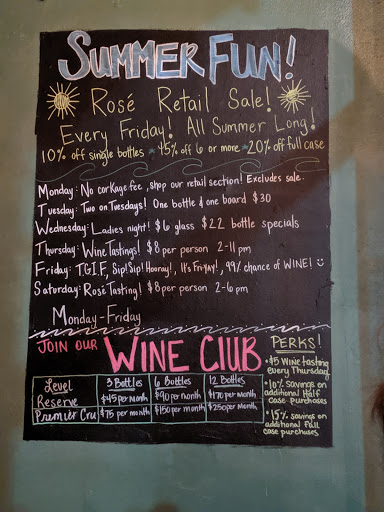 SUMMER FUN!
Rosé Retail Sale!
Every Friday! All Summer Long!
10% off single bottles 15% off 6 or more 20% off full case
Monday: No corkage fee, shop our retail section! Excludes sale.
Tuesday: Two on Tuesdays! One bottle & one board $30
Wednesday: Ladies night! $6 glass $22 bottle specials
Thursday: Wine Tastings! $8 per person 2-11 pm
Friday: T.G.I.F, Sip! Sip! Hooray!, It's FriYay!, 99% chance of WINE!
Saturday: Rosé Tasting! $8 per person 2-6 pm
Monday-Friday
JOIN OUR WINE CLUB
PERKS!
Level 3 Bottles 6 Bottles 12 Bottles
Reserve $45 per month $90 per month $170 per month
Premier Cru $75 per month $150 per month $250 per month
• $5 Wine tasting
every Thursday
• 10% savings on
additional Half
case purchases
• 15% savings on
additional full
case purchuses